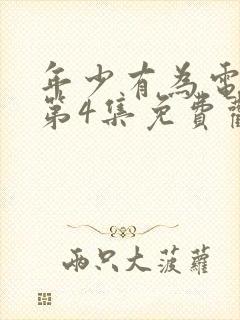 年少有為電
第4集免費觀
兩只大菠蘿